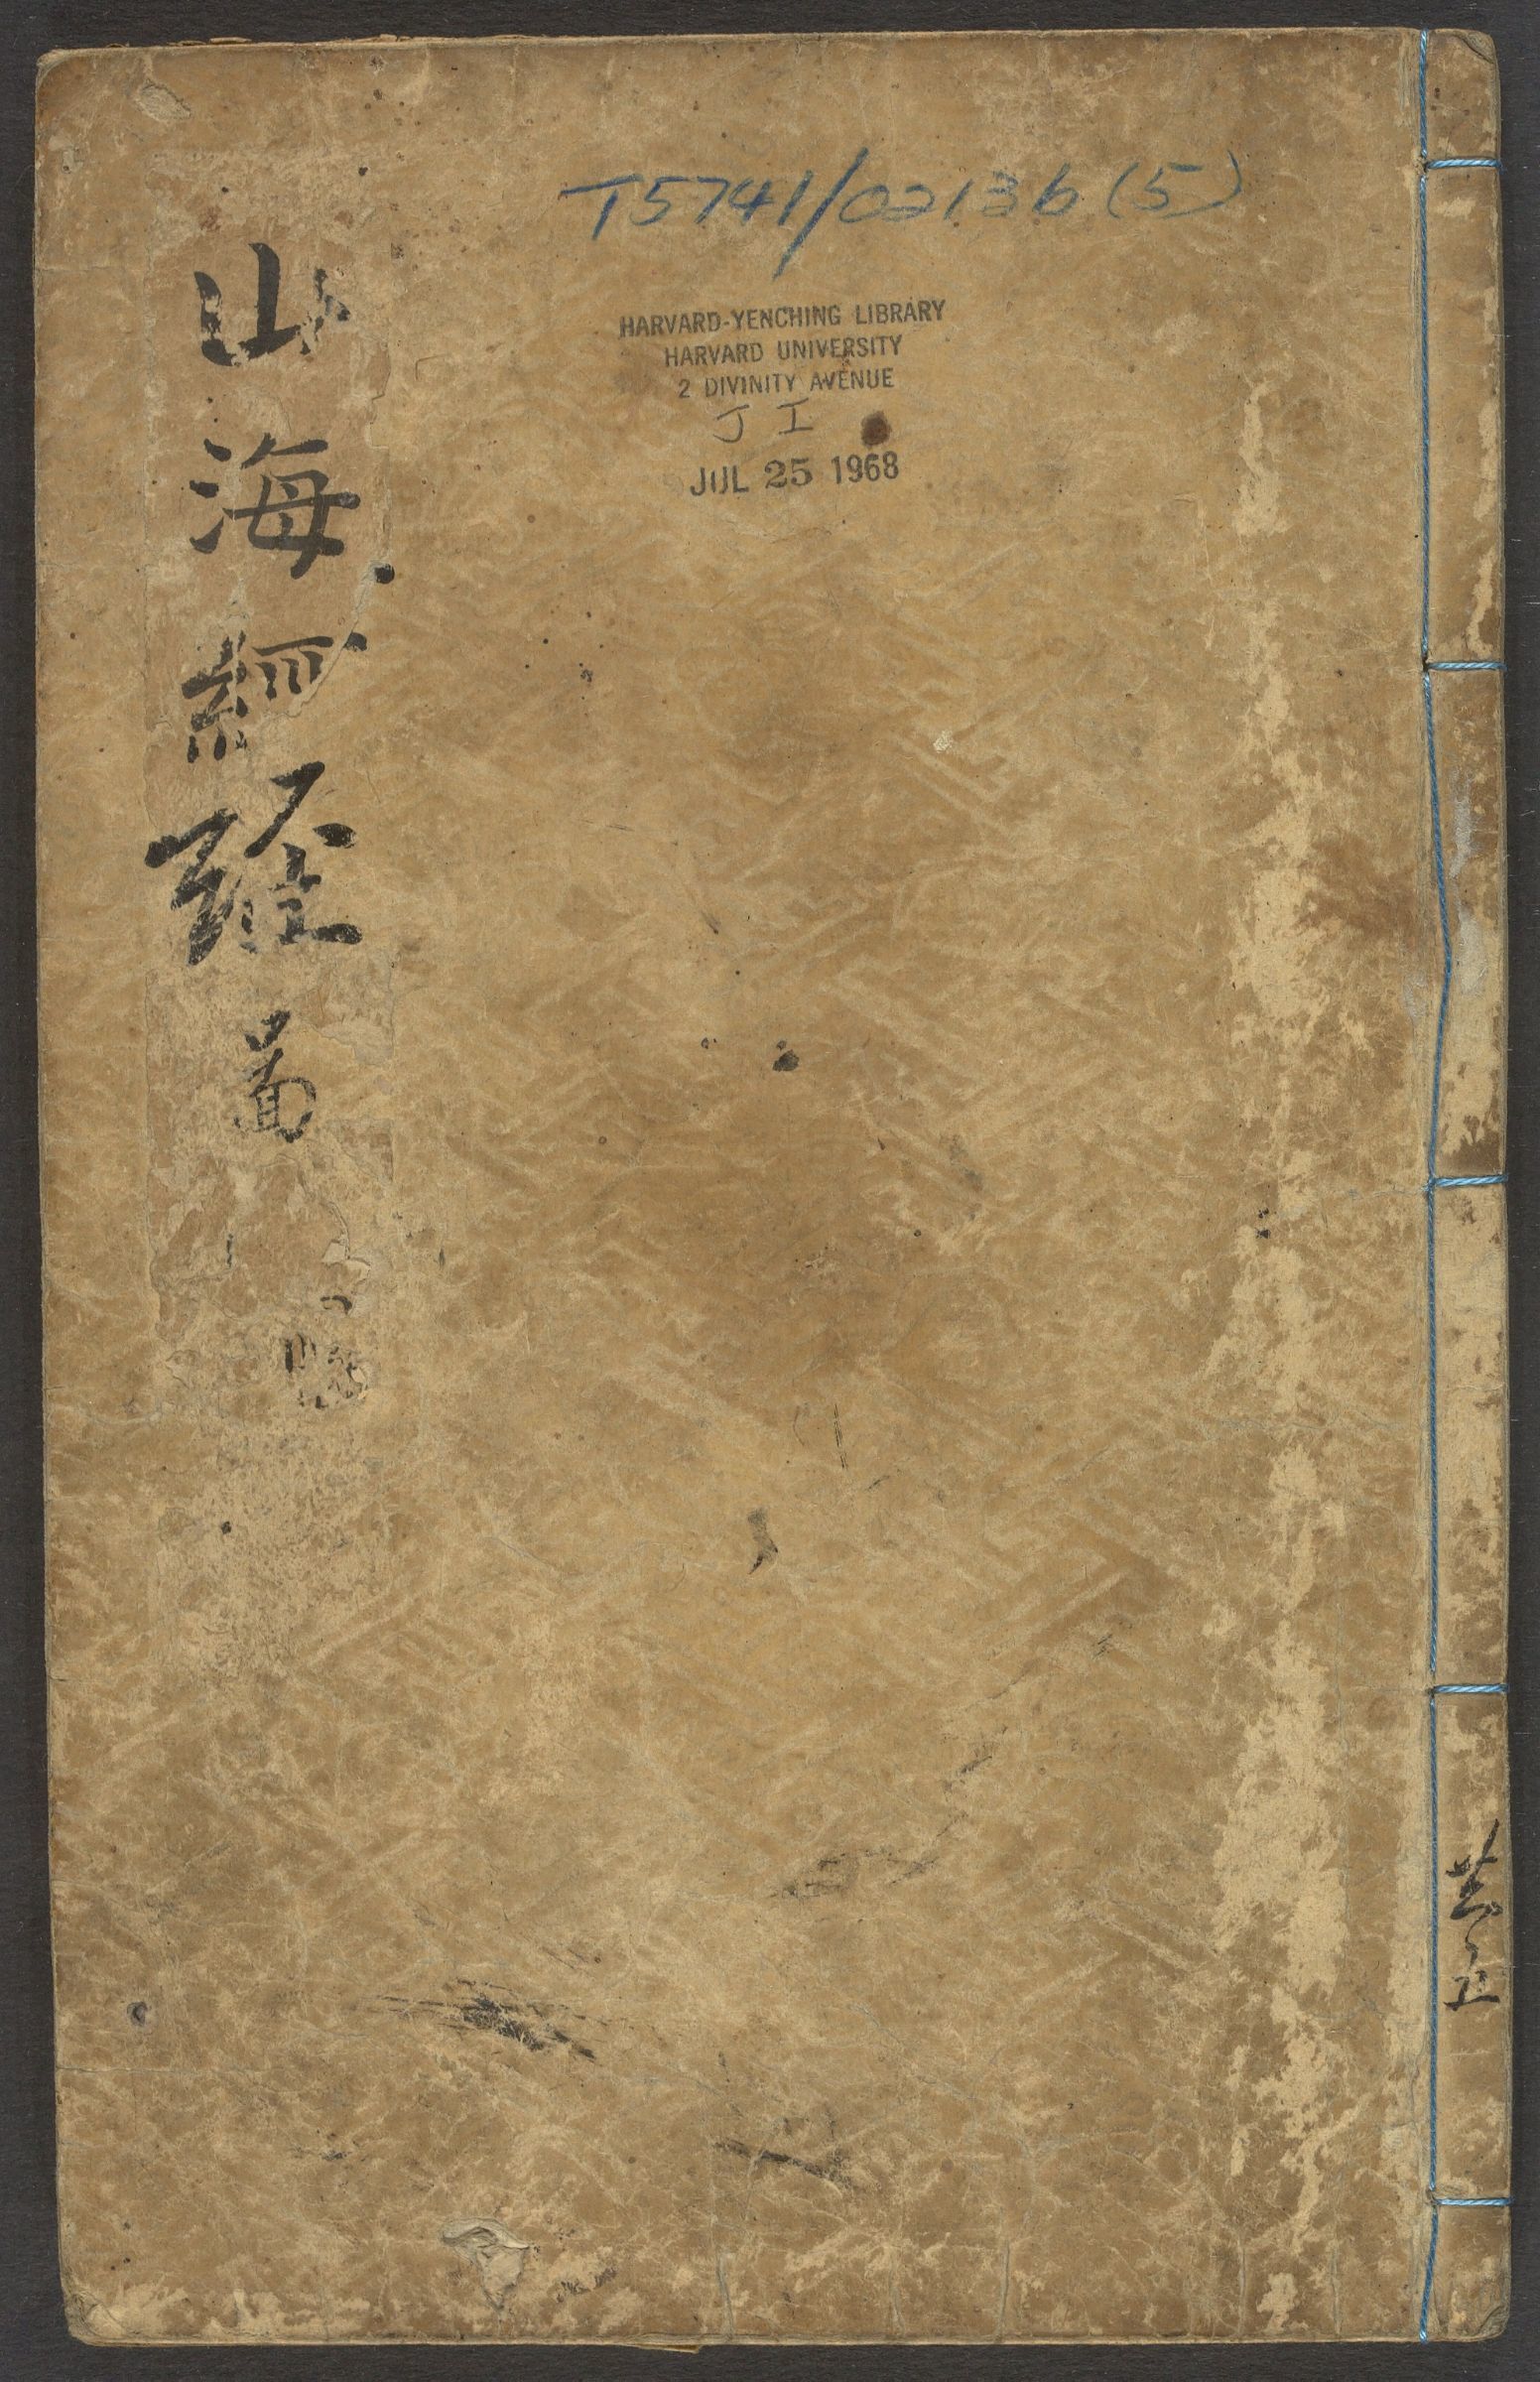 T5741/0213b(5)
HARVARD-YENCHING LIBRARY
HARVARD UNIVERSITY
2 DIVINITY AVENUE
J I
JUL 25 1968
山海經經啚
共五